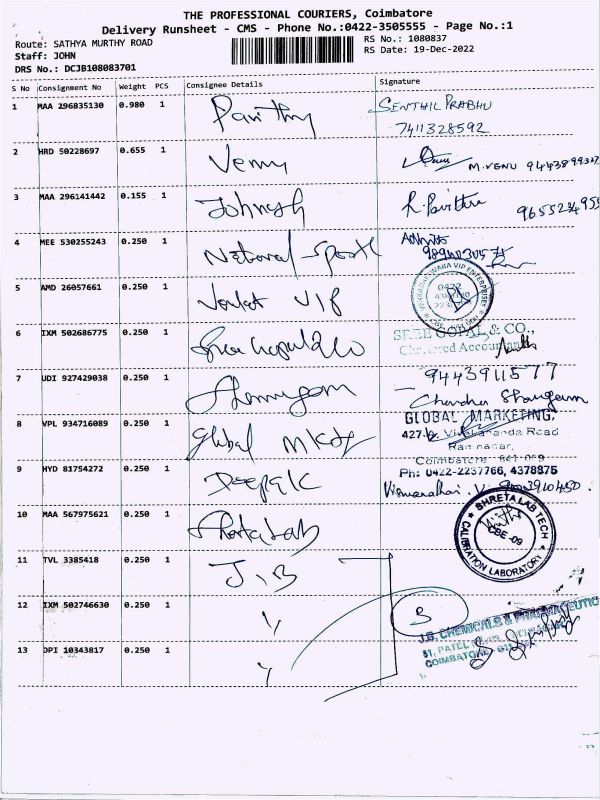 THE PROFESSIONAL COURIERS, Coimbatore
Delivery Runsheet - CMS - Phone No.:0422-3505555 - Page No.:1
Route: SATHYA MURTHY ROAD
Staff: JOHN
DRS No.: DCJB108083701
RS No.: 1080837
RS Date: 19-Dec-2022
S No Consignment No Weight PCS Consignee Details Signature
1 MAA 296835130 0.980 1 Pavithy SENTHIL PRABHU
7411328592
2 HRD 50228697 0.655 1 Venu M.VENU
3 MAA 296141442 0.155 1 Johnesh R. Pavithra
4 MEE 530255243 0.250 1 National Sports
5 AMD 26057661 0.250 1 Venkat VIP
VIP ENTERPRISES
6 IXM 502686775 0.250 1 Sree Gopal & Co SREE GOPAL & CO.,
Chartered Accountants
7 UDI 927429038 0.250 1 Shanmugam 9443911577
Chandra Shanugam
8 VPL 934716089 0.250 1 Global Mktg GLOBAL MARKETING,
427-b, Vivekananda Road
Ram nagar,
Coimbatore - 641 009
Ph: 0422-2237766, 4378875
9 HYD 81754272 0.250 1 Deepak
10 MAA 567975621 0.250 1 Shreta Lab
SHRETA LAB TECH
CBE-09
CALIBRATION LABORATORY
11 TVL 3385418 0.250 1 J.B
12 IXM 502746630 0.250 1 " B
J.B. CHEMICALS & PHARMACEUTIC
31, PATEL
COIMBATORE
13 DPI 10343817 0.250 1 "